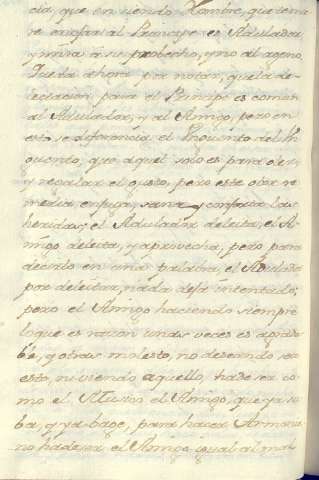 cia, que en siendo Hombre, que tema
re enojar al Principe es Adulador
y mira a su probecho, y no al ageno.
Queda ahora por notar, que la de-
lectacion para el Principe es comun
al Adulador, y al Amigo, pero en
esto se diferencia el Unguento del Un
guento, que aquel solo es para oler,
y regalar el gusto, pero este obra re
media enjuga, sana y conforta las
heridas; el Adulador deleita, el A-
migo deleita, y aprovecha, pero para
decirlo en una palabra, el Adulador
por deleitar, nada deja intentado;
pero el Amigo haciendo siempre
lo que es razon unas veces es agrada
ble, y otras molesto, no deseando ser
esto, ni viendo aquello, ha de ser co
mo el Musico el Amigo, que ya su
ba, y ya baje, para hacer Armonia
no ha de ser el Amigo igual al mal